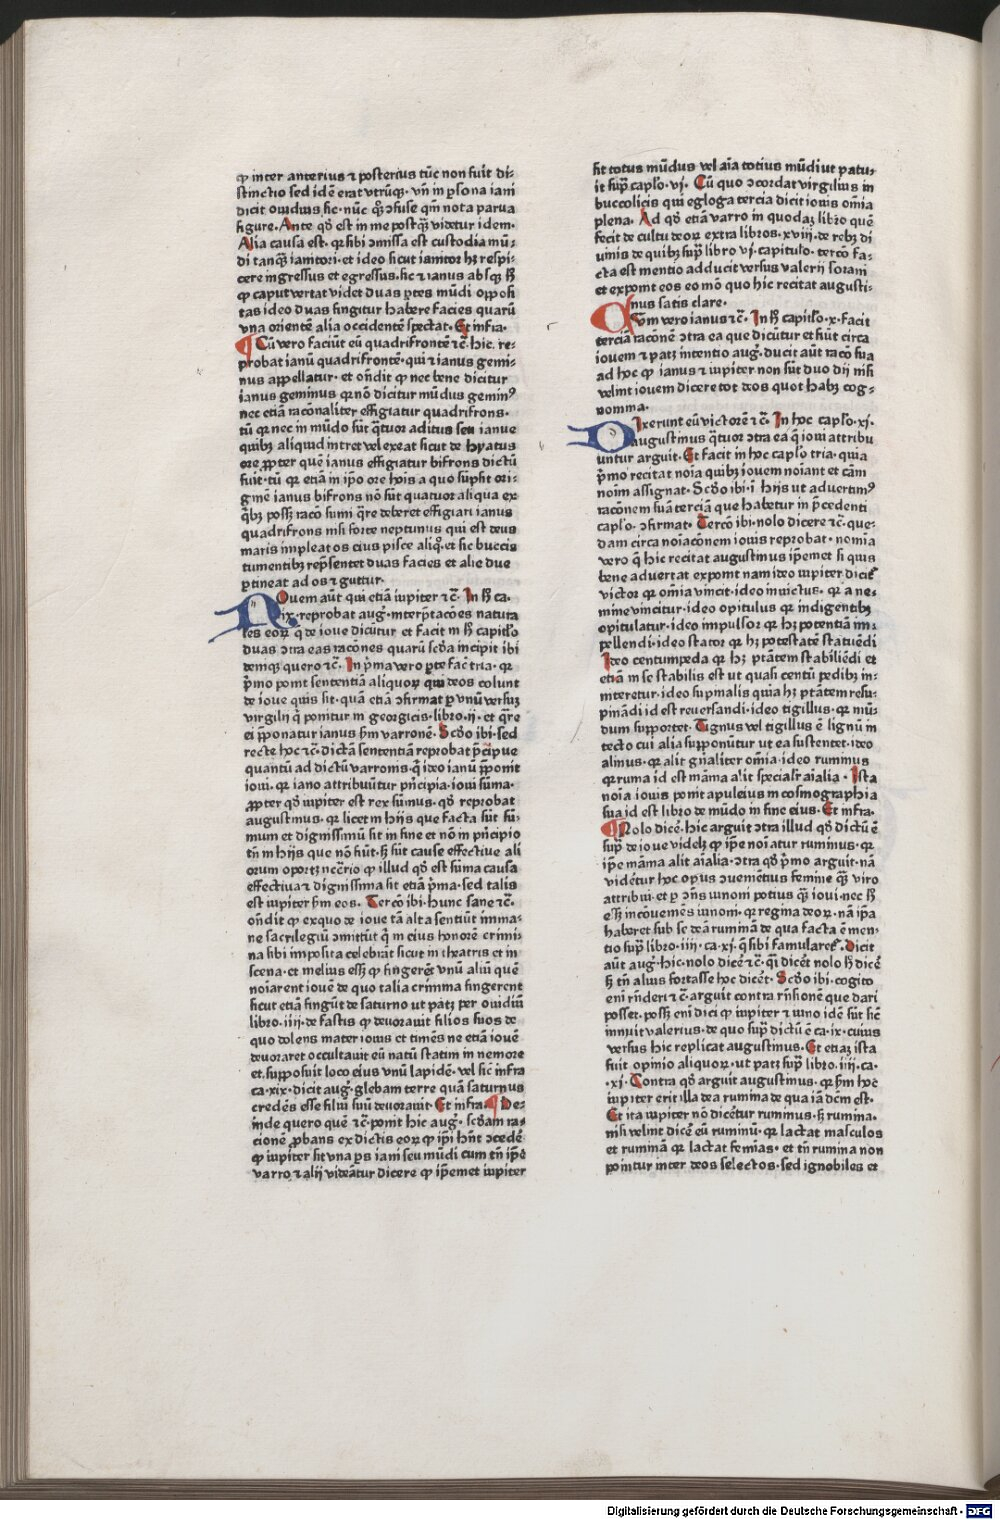 ꝙ inter anterius ⁊ posterius tūc non fuit di-
stinctio sed idē erat vtrūqꝫ. vn̄ in ꝑsona iani
dicit ouidius sic. nūc qꝫ ↄfuse qm̄ nota parua
figure. Ante qd̄ est in me postqꝫ videtur idem.
Alia causa est. qꝛ sibi ↄmissa est custodia mū-
di tanqꝫ ianitori. et ideo sicut ianitor hꝫ respi-
cere ingressus et egressus. sic ⁊ ianus absqꝫ ħ
ꝙ caput vertat videt duas ꝑtes mūdi opposi
tas ideo duas fingitur habere facies quarū
vna orientē alia occidentē spectat. Et infra.
¶ Cū vero faciūt eū quadrifrontē ⁊c̄. hic. re-
probat ianū quadrifrontē. qui ⁊ ianus gemi-
nus appellatur. et on̄dit ꝙ nec bene dicitur
ianus geminus qꝛ nō dicitur mūdus gemin᾽
nec etiā racōnaliter effigiatur quadrifrons.
tū qꝛ nec in mūdo sūt q̄tuor aditus seu ianue
quibꝫ aliquid intret vel exeat sicut de hyatus
ore ꝓpter quē ianus effigiatur bifrons dictū
fuit. tū qꝛ etiā in ip̄o ore hoīs a quo sūpsit ori-
ginē ianus bifrons nō sūt quatuor aliqua ex
q̄bꝫ possꝫ racō sumi q̄re deberet effigiari ianus
quadrifrons nisi forte neptunus qui est deus
maris impleat os eius pisce aliq̊. et sic buccis
tumentibꝫ rep̄sentet duas facies et alie due
ꝑtineat ad os ⁊ guttur.
Iouem aūt qui etiā iupiter ⁊ c̄. In ħ ca.
ix. reprobat aug᾽. interp̄tacōes natura
les eoꝝ q̄ de ioue dicūtur et facit in ħ capitľo
duas ↄtra eas racōnes quarū scd̄a incipit ibi
demqꝫ quero ⁊c̄. In p̄ma vero ꝑte fac̄ tria. qꝛ
p̄mo ponit sententiā aliquoꝝ qui deos colunt
de ioue quis sit. quā etiā ↄfirmat ꝑ vnū versuꝫ
virgilij q̄ ponitur in georgicis. libro. ij. et q̄re
ei p̄ponatur ianus ẜm varronē. Scd̄o ibi. sed
recte hoc ⁊c̄. dictā sententiā reprobat p̄cipue
quantū ad dictū varronis. q̄ ideo ianū p̄ponit
ioui. qꝛ iano attribuūtur p̄ncipia. ioui sūma.
ꝓpter qd̄ iupiter est rex sūmus. qd̄ reprobat
augustinus. qꝛ licet in hijs que facta sūt sū-
mum et dignissimū sit in fine et nō in p̄ncipio
tn̄ in hijs que nō fiūt. sꝫ sūt cause effectiue ali
orum oportꝫ necīo ꝙ illud qd̄ est sūma causa
effectiua ⁊ dignissima sit etiā p̄ma. sed talis
est iupiter ẜm eos. Tercō ibi. hunc sane ⁊c̄.
on̄dit ꝙ exquo de ioue tā alta sentiūt inma-
ne sacrilegiū ↄmittūt q̄ in eius honorē crimi-
na sibi imposita celebrāt sicut in theatris et in
scena. et melius essꝫ ꝙ fingerēt vnū aliū quē
noīarent iouē de quo talia crimina fingerent
sicut etiā fingūt de saturno ut patꝫ per ouidiū
libro. iiij. de fastis ꝙ deuorauit filios suos de
quo dolens mater iouis et timēs ne etiā iouē
deuoraret occultauit eū natū statim in nemore
et supposuit loco eius vnū lapidē. vel sic infra
ca. xix. dicit aug᾽. glebam terre quā saturnus
credēs esse filiū suū deuorauit. Et infra. ¶ De-
inde quero quē ⁊c̄. ponit hic aug᾽. scd̄am ra-
cionē ꝓbans ex dictis eoꝝ ꝙ ip̄i hn̄t ↄcedē
ꝙ iupiter sit vna ꝑs iani seu mūdi cum tn̄ ip̄e
varro ⁊ alij videātur dicere ꝙ ip̄emet iupiter
sit totus mūdus vel aīa totius mūdi ut patu-
it sup̄ capľo. vj. Cū quo ↄcordat virgilius in
buccolicis qui egloga tercia dicit iouis om̄ia
plena. Ad qd̄ etiā varro in quodaꝫ libro quē
fecit de cultu deoꝝ extra libros. xviij. de rebꝫ di
uinis de quibꝫ sup̄ libro vj. capituľo. tercō fa-
cta est mentio adducit versus valerij sorani
et exponit eos eo mō quo hic recitat augusti-
nus satis clare.
Cum vero ianus ⁊c̄. In ħ capitľo. x. facit
terciā racōnē ↄtra ea que dicūtur et fiūt circa
iouem ⁊ patꝫ intentio aug᾽. ducit aūt racō sua
ad hoc ꝙ ianus ⁊ iupiter non sūt duo dij nisi
velint iouem dicere tot deos quot habꝫ cog-
nomina.
Dixerunt eū victorē ⁊ c̄. In hoc capľo. xj.
augustinus q̄tuor ↄtra ea q̄ ioui attribu
untur arguit. Et facit in hoc capľo tria. quia
p̄mo recitat noīa quibꝫ iouem noīant et cām
noīm assignat. Scd̄o ibi. i hijs ut aduertim᾽
racōnem suā terciā que habetur in p̄cedenti
capľo. ↄfirmat. Tercō ibi. nolo dicere ⁊c̄. que-
dam circa noīacōnem iouis reprobat. nomīa
vero q̄ hic recitat augustinus ip̄emet si quis
bene aduertat exponit nam ideo iupiter dicit᷑
victor qꝛ om̄ia vincit. ideo inuictus. qꝛ a ne-
mine vincitur. ideo opitulus qꝛ indigentibꝫ
opitulatur. ideo impulsor qꝛ hꝫ potentiā im-
pellendi. ideo stator qꝛ hꝫ potestatē statuēdi
Ideo centumpeda qꝛ hꝫ ptātem stabiliēdi et
etiā in se stabilis est ut quasi centū pedibꝫ in-
nitetur. ideo supinalis quia hꝫ ptātem resu-
pināndi id est reuersandi. ideo tigillus. qꝛ mū-
dum supportet. Tignus vel tigillus ē lignū in
tecto cui alia supponūtur ut ea sustentet. ideo
almus. qꝛ alit gn̄aliter om̄ia. ideo ruminus
qꝛ ruma id est māma alit specialr̄ aīalia. Ista
noīa iouis ponit apuleius in cosmographia
sua id est libro de mūdo in fine eius. Et infra.
¶ Nolo dicē. hic arguit ↄtra illud qd̄ dictū ē
sup̄ de ioue videlꝫ ꝙ ip̄e noīatur ruminus. qꝛ
ip̄e māma alit aīalia. ↄtra qd̄ p̄mo arguit. nā
vidētur hoc opus ↄuemētius femine qꝫ viro
attribui. et ꝑ ↄn̄s iunoni potius qꝫ ioui. nec ħ
essꝫ incōuemēs iunoni. qꝛ regina deoꝝ. nā ip̄a
haberet sub se deā ruminā de qua facta ē men-
tio sup̄ libro. iiij. ca. xj. q̄ sibi famularet᷑. Dicit
aūt aug᾽. hic. nolo dicē ⁊c̄. q̄i dicēt nolo ħ dicē
sꝫ tn̄ alius fortasse hoc dicēt. Scd̄o ibi. cogito
eni r̄nderi ⁊ c̄. arguit contra r̄nsionē que dari
posset. possꝫ eni dici ꝙ iupiter ⁊ iuno idē sūt sic̄
innuit valerius. de quo sup̄ dictū ē ca. ix. cuius
versus hic replicat augustinus. Et etiaꝫ ista
fuit opinio aliquoꝝ. ut patꝫ sup̄ libro. iiij. ca.
.xj. Contra qd̄ arguit augustinus. qꝛ ẜm hoc
iupiter erit illa dea rumina de qua iā dc̄m est.
Et ita iupiter nō dicētur ruminus. sꝫ rumina.
nisi velint dicē eū ruminū. qꝛ lactat masculos
et ruminā qꝛ lactat femīas. et tn̄ rumina non
ponitur inter deos selectos. sed ignobiles et
Digitalisierung gefördert durch die Deutsche Forschungsgemeinschaft - DFG